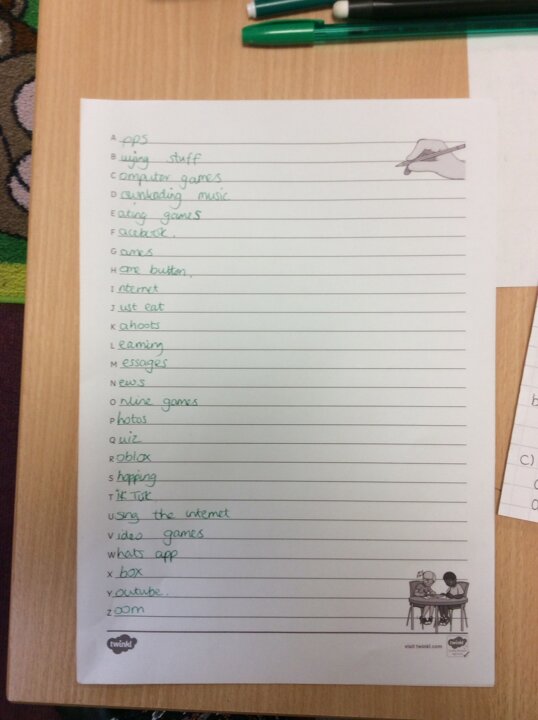 A pps
B uying stuff
C omputer games
D ownloading music
E ating games
F acebook.
G ames
H ome button.
I nternet
J ust eat
K ahoots
L earning
M essages
N ews
O nline games
P hotos
Q uiz
R oblox
S hopping
T ik Tok
U sing the internet
V ideo games
W hats app
X box
Y outube.
Z oom
twinkl
visit twinkl.com
c)